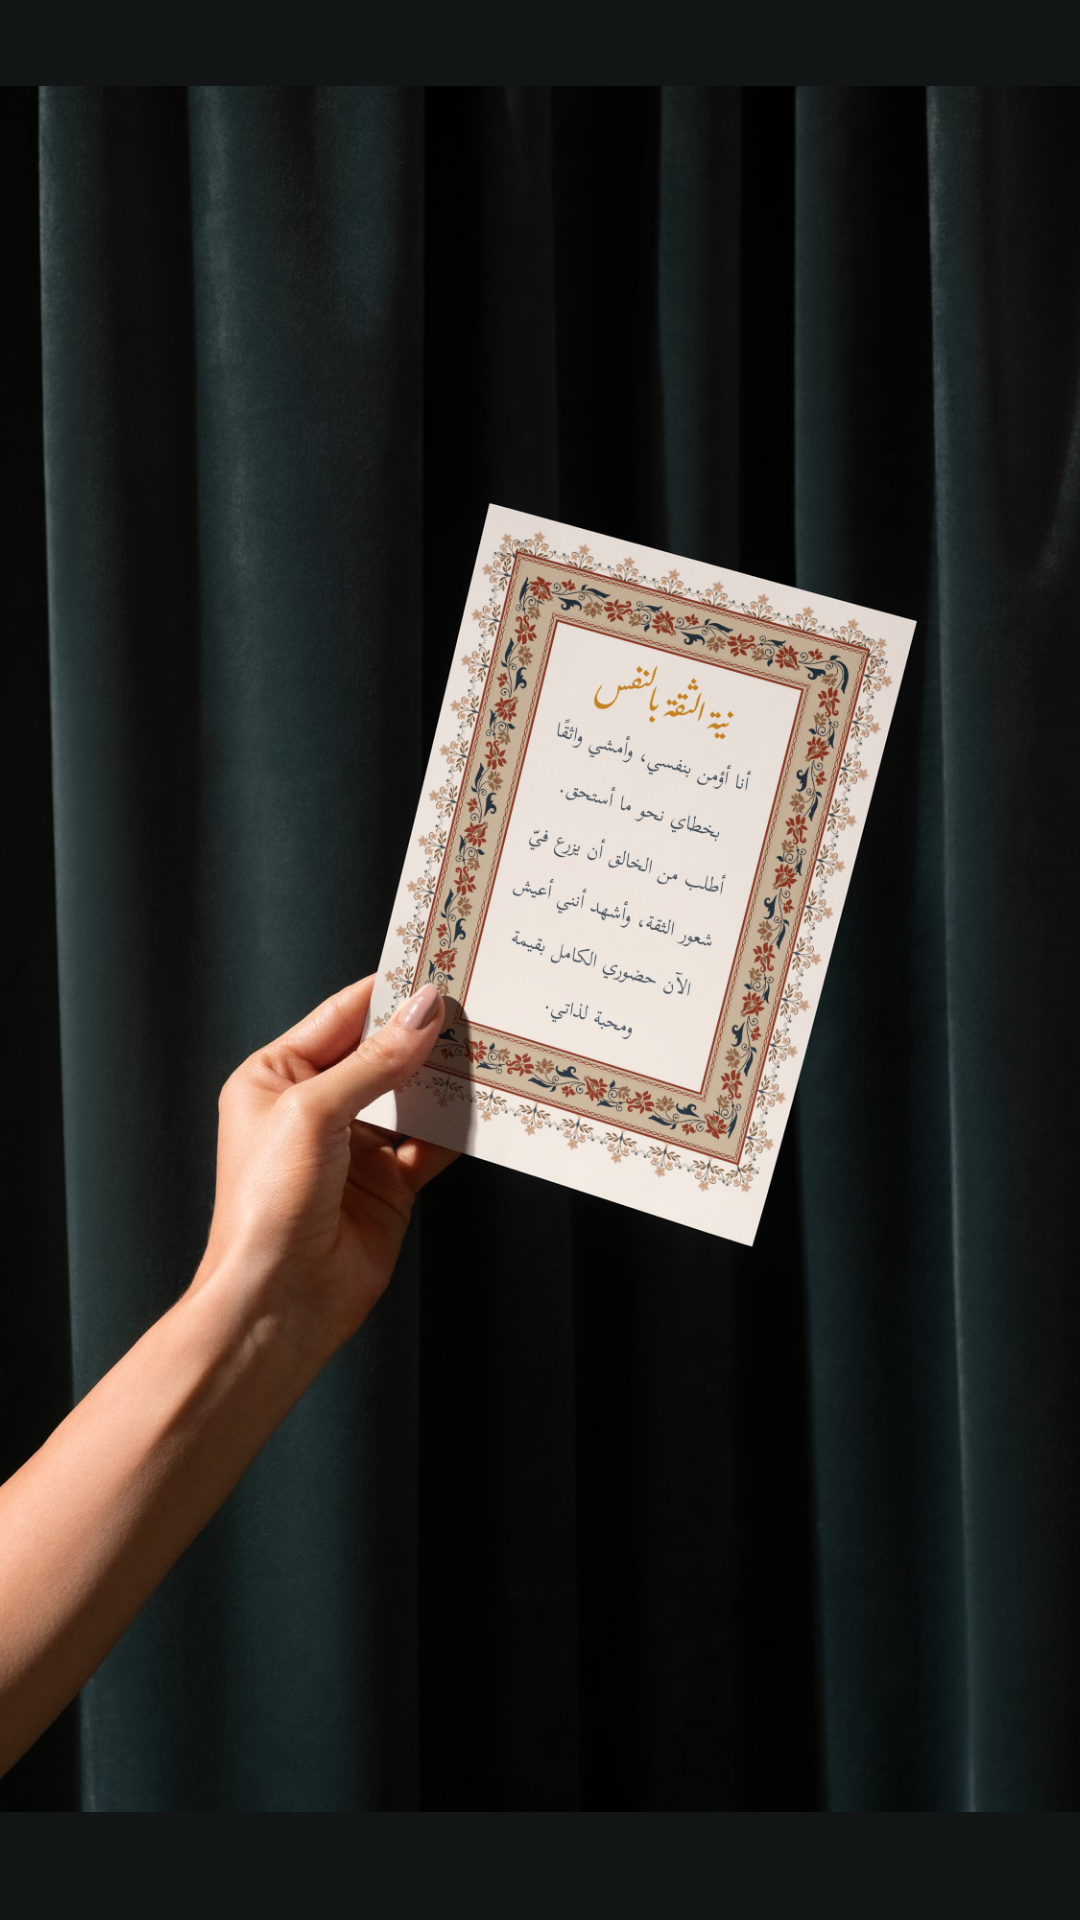 نية الثقة بالنفس
أنا أؤمن بنفسي، وأمشي واثقًا
بخطاي نحو ما أستحق.
أطلب من الخالق أن يزرع فيّ
شعور الثقة، وأشهد أنني أعيش
الآن حضوري الكامل بقيمة
ومحبة لذاتي.